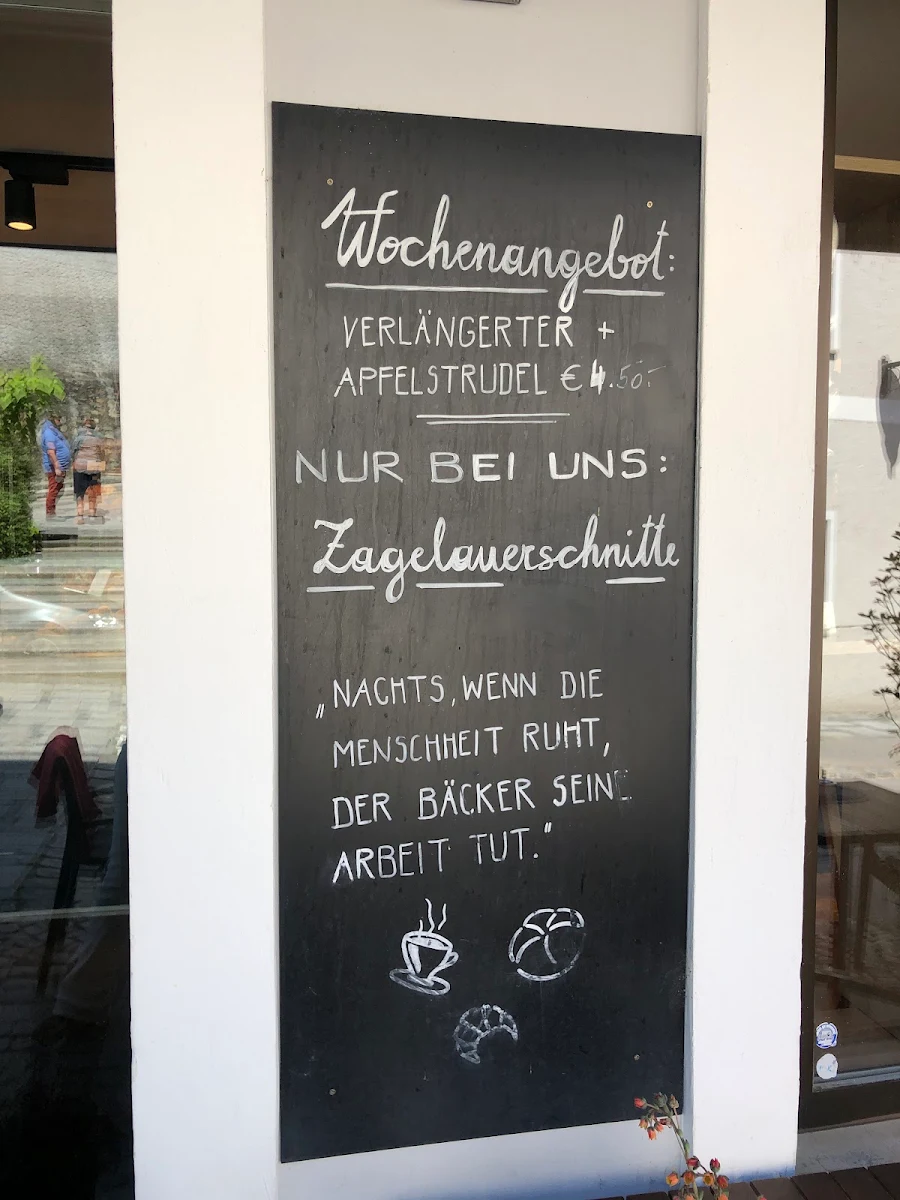 Wochenangebot:
VERLÄNGERTER +
APFELSTRUDEL € 4.50.-
NUR BEI UNS:
Zagelauerschnitte
„NACHTS, WENN DIE
MENSCHHEIT RUHT,
DER BÄCKER SEINE
ARBEIT TUT.“